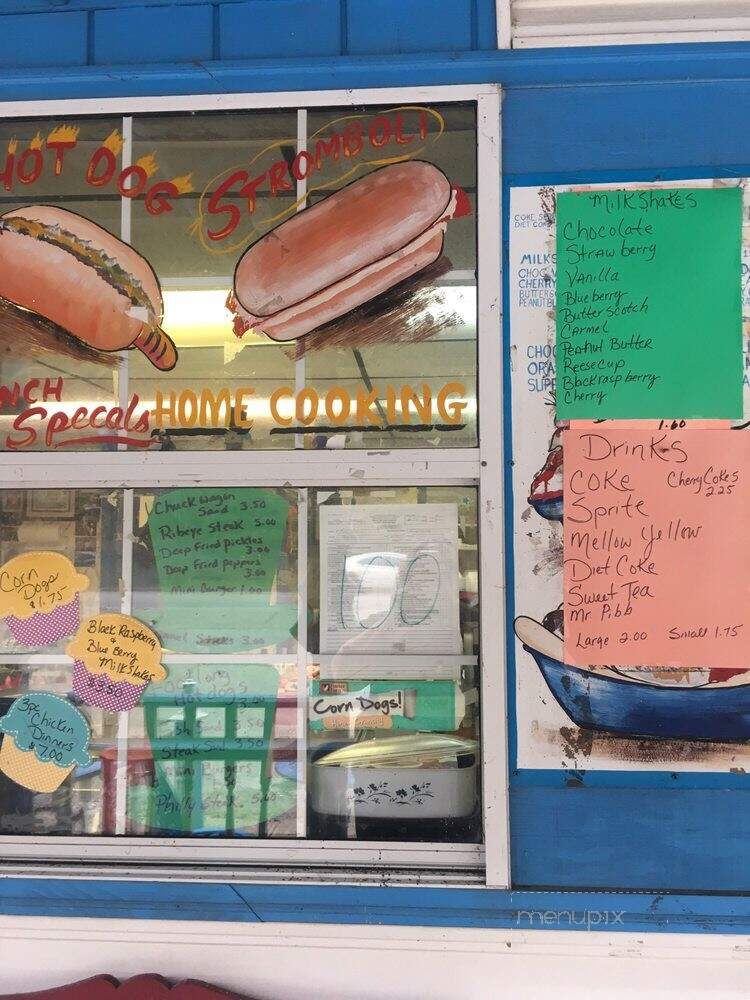 HOT DOG
STROMBOLI
NCH
Specals
HOME COOKING
Chuck Wagon
Sand 3.50
Ribeye Steak 5.00
Deep Fried pickles
3.00
Deep Fried peppers
3.00
Mini Burger 1.00
Steks 3.00
Corn
Dogs
$1.75
Black Raspberry
&
Blue Berry
MilkShakes
$3.50
3pc
Chicken
Dinners
$7.00
Hotdogs
Steak Sand 3.50
Mini Burgers
Philly Steak 5.00
100
Corn Dogs!
COKE
DIET COKE
MILKS
CHOC
CHERRY
BUTTERS
PEANUT BU
CHOC
ORA
SUPE
MilkShakes
Chocolate
Straw berry
Vanilla
Blue berry
Butter Scotch
Carmel
Peanut Butter
Reese Cup
Black rasp berry
Cherry
1.60
Drinks
Coke
Cherry Cokes
2.25
Sprite
Mellow Yellow
Diet Coke
Sweet Tea
Mr Pibb
Large 2.00 Small 1.75
menupix